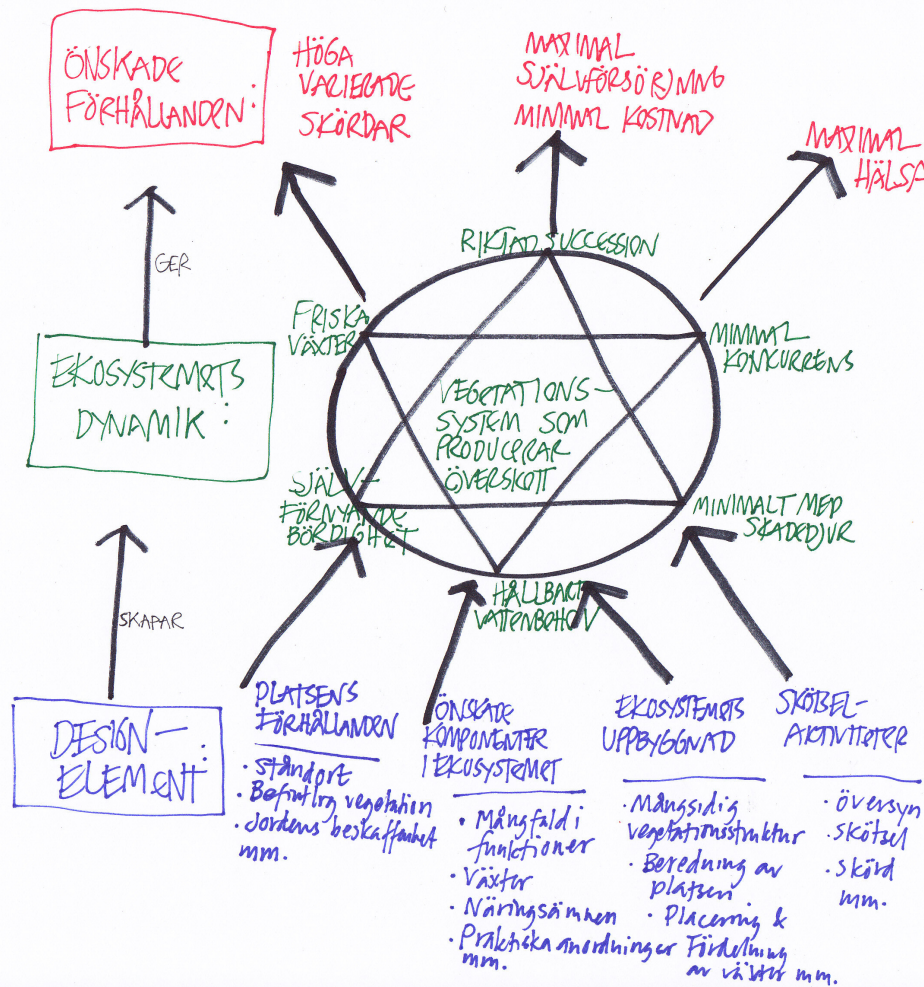 ÖNSKADE
FÖRHÅLLANDEN:
HÖGA
VARIERADE
SKÖRDAR
MAXIMAL
SJÄLVFÖRSÖRJNING
MINIMAL KOSTNAD
MAXIMAL
HÄLSA
GER
EKOSYSTEMETS
DYNAMIK:
RIKTAD SUCCESSION
FRISKA
VÄXTER
MINIMAL
KONKURRENS
VEGETATIONS-
SYSTEM SOM
PRODUCERAR
ÖVERSKOTT
SJÄLV-
FÖRNYANDE
BÖRDIGHET
MINIMALT MED
SKADEDJUR
HÅLLBART
VATTENBEHOV
SKAPAR
DESIGN-
ELEMENT:
PLATSENS
FÖRHÅLLANDEN
• Ståndort
• Befintlig vegetation
• Jordens beskaffenhet
mm.
ÖNSKADE
KOMPONENTER
I EKOSYSTEMET
• Mångfald i
funktioner
• Växter
• Näringsämnen
• Praktiska anordningar
mm.
EKOSYSTEMETS
UPPBYGGNAD
• Mångsidig
vegetationsstruktur
• Beredning av
platsen.
• Placering &
Fördelning
av växter mm.
SKÖTSEL-
AKTIVITETER
• översyn
• skötsel
• skörd
mm.